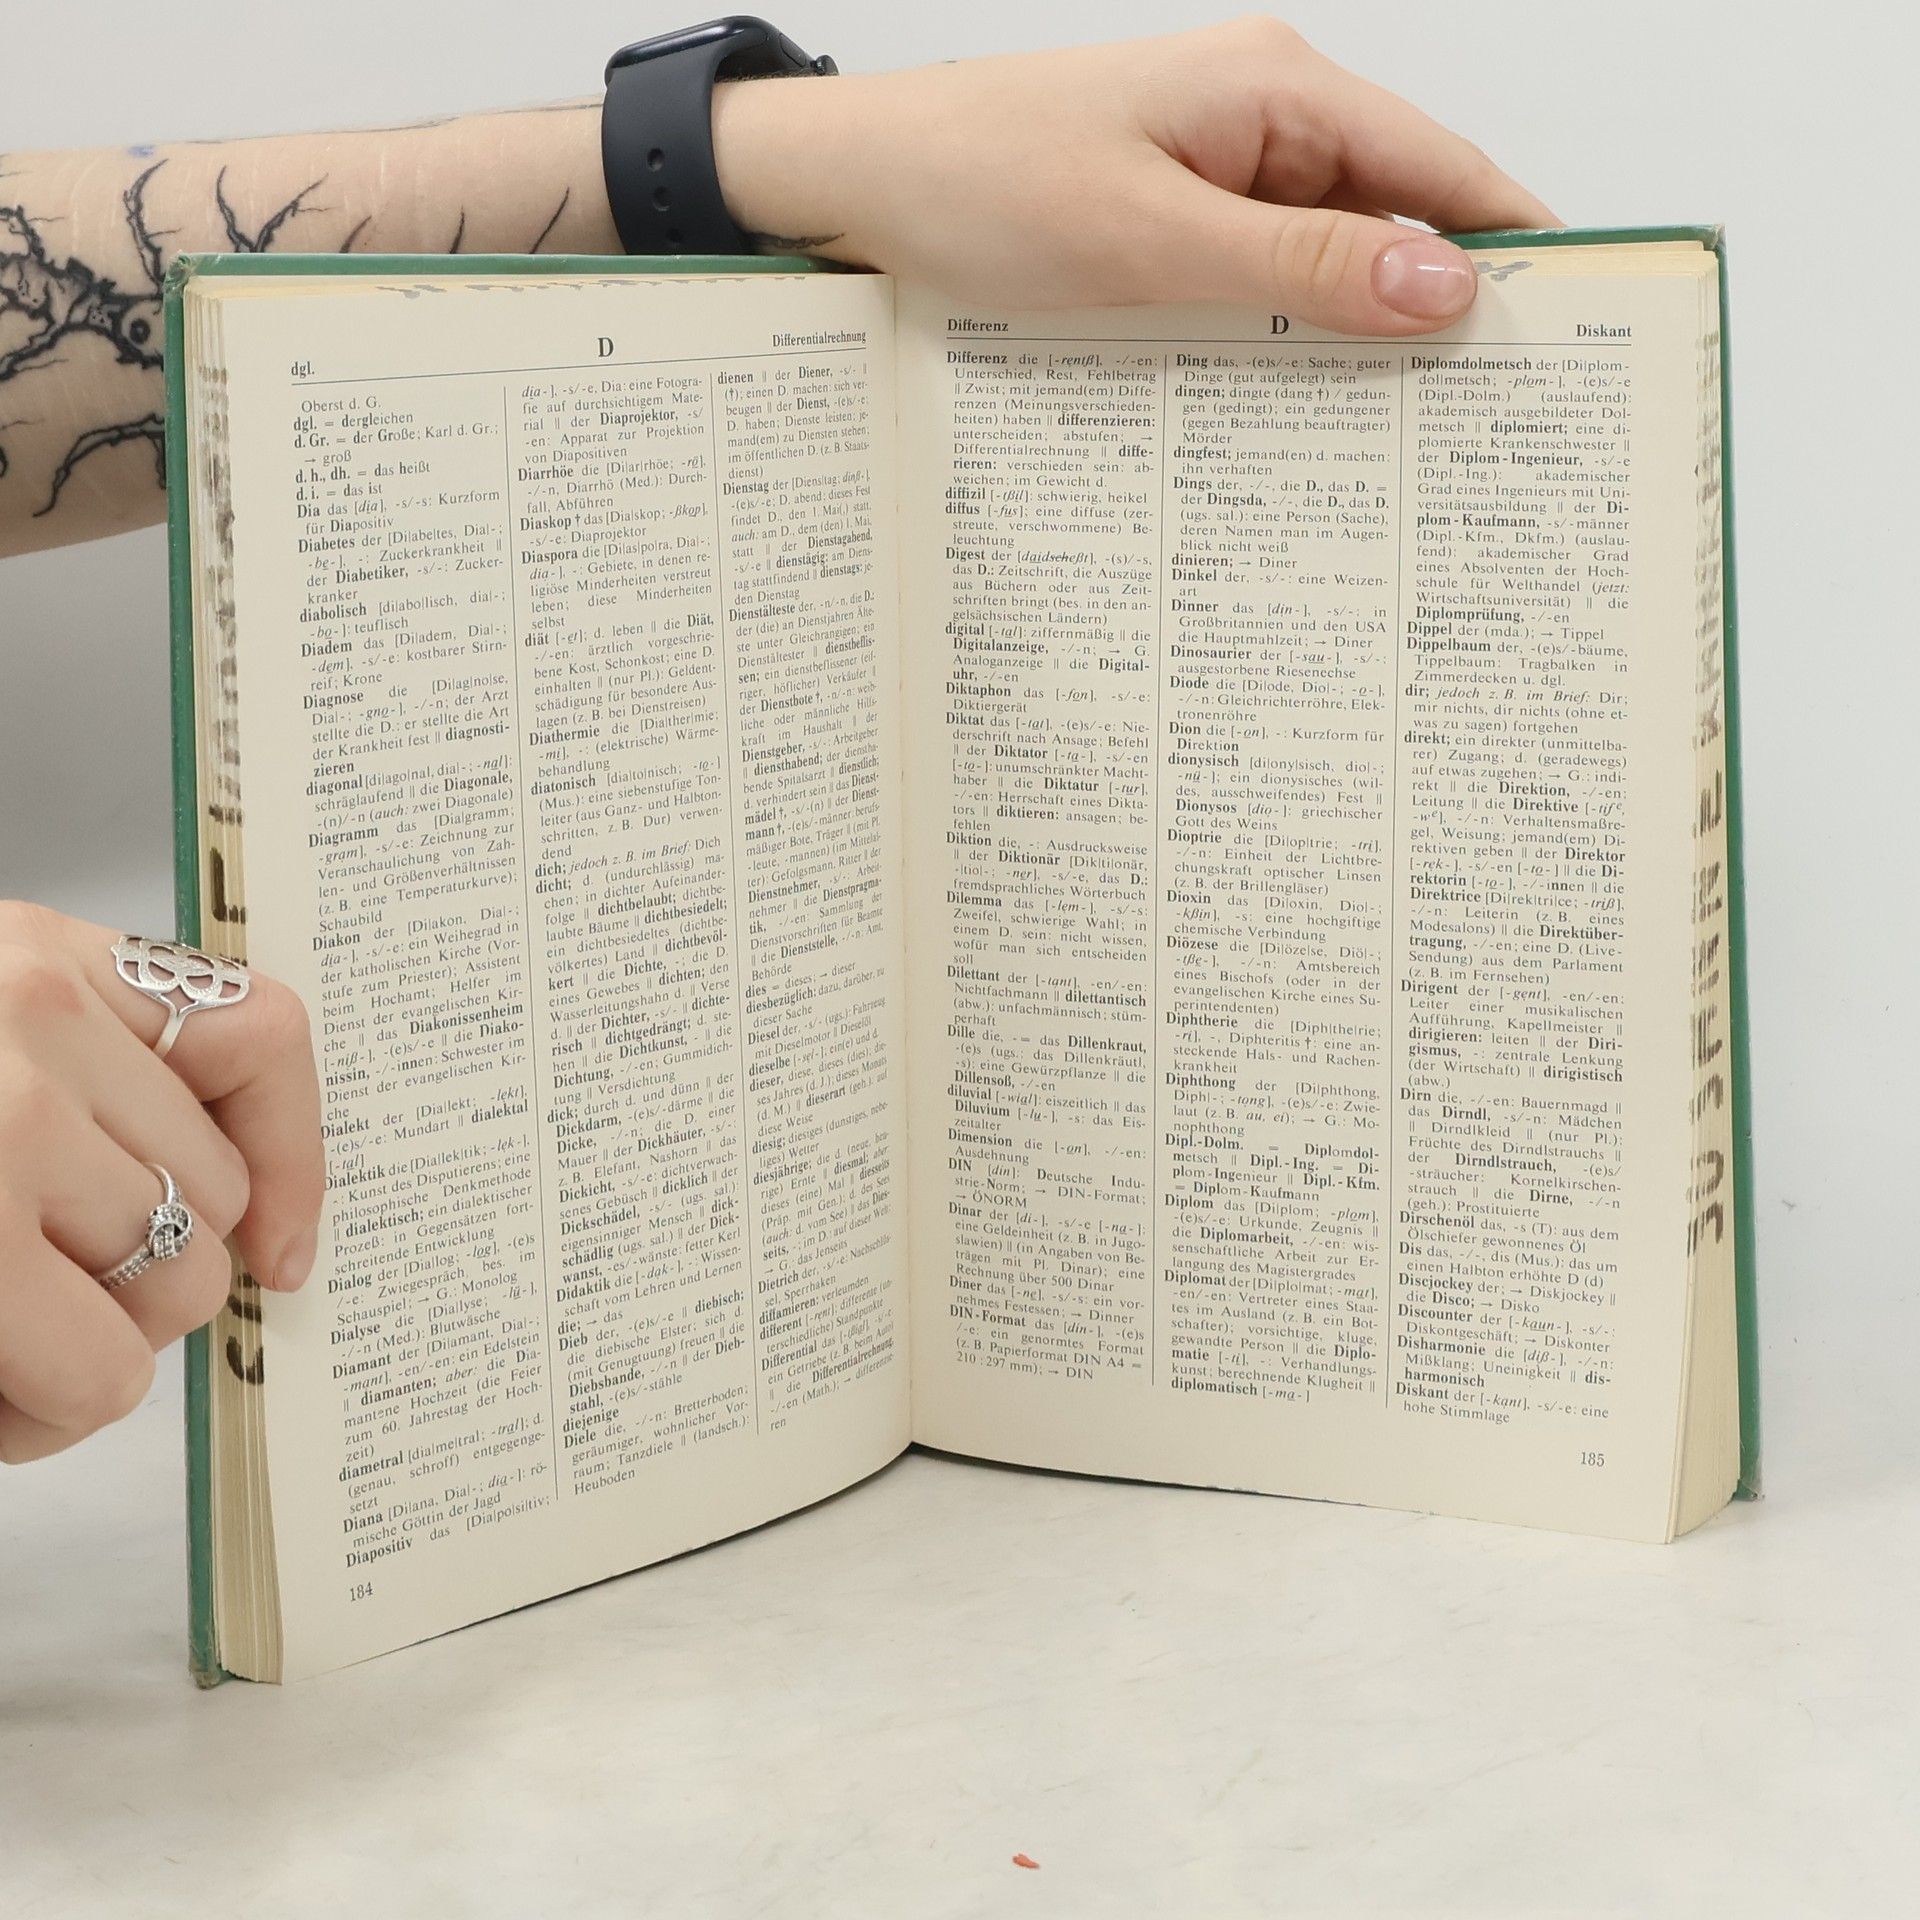 dgl.
D
Differentialrechnung
Oberst d. G.
dgl. = dergleichen
d. Gr. = der Große; Karl d. Gr.;
→ groß
d. h., dh. = das heißt
d. i. = das ist
Dia das [dia], -s/-s: Kurzform
für Diapositiv
Diabetes der [Di|abe|tes, Dia|-;
-be-], -: Zuckerkrankheit ||
der Diabetiker, -s/-: Zucker-
kranker
diabolisch [di|abo|lisch, dia|-;
-bo-]: teuflisch
Diadem das [Di|adem, Dia|-;
-dem], -s/-e: kostbarer Stirn-
reif; Krone
Diagnose die [Di|ag|no|se,
Dia|-; -gno-], -/-n; der Arzt
stellte die D.: er stellte die Art
der Krankheit fest || diagnosti-
zieren
diagonal [di|ago|nal, dia|-; -nal]:
schräglaufend || die Diagonale,
-(n)/-n (auch: zwei Diagonale)
Diagramm das [Dia|gramm;
-gram], -s/-e: Zeichnung zur
Veranschaulichung von Zah-
len- und Größenverhältnissen
(z. B. eine Temperaturkurve);
Schaubild
Diakon der [Di|akon, Dia|-;
dia-], -s/-e: ein Weihegrad in
der katholischen Kirche (Vor-
stufe zum Priester); Assistent
beim Hochamt; Helfer im
Dienst der evangelischen Kir-
che || das Diakonissenheim
[-niß-], -(e)s/-e || die Diako-
nissin, -/-innen: Schwester im
Dienst der evangelischen Kir-
che
Dialekt der [Dia|lekt; -lekt],
-(e)s/-e: Mundart || dialektal
[-tal]
Dialektik die [Dia|lek|tik; -lek-],
-: Kunst des Disputierens; eine
philosophische Denkmethode
|| dialektisch; ein dialektischer
Prozeß: in Gegensätzen fort-
schreitende Entwicklung
Dialog der [Dia|log; -log], -(e)s
/-e: Zwiegespräch, bes. im
Schauspiel; → G.: Monolog
Dialyse die [Dia|lyse; -lü-],
-/-n (Med.): Blutwäsche
Diamant der [Di|amant, Dia|-;
-mant], -en/-en: ein Edelstein
|| diamanten; aber: die Dia-
mantene Hochzeit (die Feier
zum 60. Jahrestag der Hoch-
zeit)
diametral [dia|me|tral; -tral]; d.
(genau, schroff) entgegenge-
setzt
Diana [Di|ana, Dia|-; dia-]: rö-
mische Göttin der Jagd
Diapositiv das [Dia|po|si|tiv;
dia-], -s/-e, Dia: eine Fotogra-
fie auf durchsichtigem Mate-
rial || der Diaprojektor, -s/
-en: Apparat zur Projektion
von Diapositiven
Diarrhöe die [Di|ar|rhöe; -rö],
-/-n, Diarrhö (Med.): Durch-
fall, Abführen
Diaskop † das [Dia|skop; -ßkop],
-s/-e: Diaprojektor
Diaspora die [Di|as|po|ra, Dia|-;
dia-], -: Gebiete, in denen re-
ligiöse Minderheiten verstreut
leben; diese Minderheiten
selbst
diät [-et]; d. leben || die Diät,
-/-en: ärztlich vorgeschrie-
bene Kost, Schonkost; eine D.
einhalten || (nur Pl.): Geldent-
schädigung für besondere Aus-
lagen (z. B. bei Dienstreisen)
Diathermie die [Dia|ther|mie;
-mi], -: (elektrische) Wärme-
behandlung
diatonisch [dia|to|nisch; -to-]
(Mus.): eine siebenstufige Ton-
leiter (aus Ganz- und Halbton-
schritten, z. B. Dur) verwen-
dend
dich; jedoch z. B. im Brief: Dich
dicht; d. (undurchlässig) ma-
chen; in dichter Aufeinander-
folge || dichtbelaubt; dichtbe-
laubte Bäume || dichtbesiedelt;
ein dichtbesiedeltes (dichtbe-
völkertes) Land || dichtbevöl-
kert || die Dichte, -; die D.
eines Gewebes || dichten; den
Wasserleitungshahn d. || Verse
d. || der Dichter, -s/- || dichte-
risch || dichtgedrängt; d. ste-
hen || die Dichtkunst, - || die
Dichtung, -/-en; Gummidich-
tung || Versdichtung
dick; durch d. und dünn || der
Dickdarm, -(e)s/-därme || die
Dicke, -/-n; die D. einer
Mauer || der Dickhäuter, -s/-:
z. B. Elefant, Nashorn || das
Dickicht, -s/-e: dichtverwach-
senes Gebüsch || dicklich || der
Dickschädel, -s/- (ugs. sal.):
eigensinniger Mensch || dick-
schädlig (ugs. sal.) || der Dick-
wanst, -es/-wänste: fetter Kerl
Didaktik die [-dak-], -: Wissen-
schaft vom Lehren und Lernen
die; → das
Dieb der, -(e)s/-e || diebisch;
die diebische Elster; sich d.
(mit Genugtuung) freuen || die
Diebsbande, -/-n || der Dieb-
stahl, -(e)s/-stähle
diejenige
Diele die, -/-n: Bretterboden;
geräumiger, wohnlicher Vor-
raum; Tanzdiele || (landsch.):
Heuboden
dienen || der Diener, -s/- ||
(†); einen D. machen: sich ver-
beugen || der Dienst, -(e)s/-e;
D. haben; Dienste leisten; je-
mand(em) zu Diensten stehen;
im öffentlichen D. (z. B. Staats-
dienst)
Dienstag der [Diens|tag; dinß-],
-(e)s/-e; D. abend; dieses Fest
findet D., den 1. Mai(,) statt,
auch: am D., dem (den) 1. Mai,
statt || der Dienstagabend,
-s/-e || dienstägig: am Diens-
tag stattfindend || dienstags: je-
den Dienstag
Dienstälteste der, -n/-n, die D.:
der (die) an Dienstjahren Älte-
ste unter Gleichrangigen; ein
Dienstältester || dienstbeflis-
sen; ein dienstbeflissener (eif-
riger, höflicher) Verkäufer ||
der Dienstbote †, -n/-n: weib-
liche oder männliche Hilfs-
kraft im Haushalt || der
Dienstgeber, -s/-: Arbeitgeber
|| diensthabend; der diensthа-
bende Spitalsarzt || dienstlich;
d. verhindert sein || das Dienst-
mädel †, -s/-(n) || der Dienst-
mann †, -(e)s/-männer: berufs-
mäßiger Bote, Träger || (mit Pl.
-leute, -mannen) (im Mittelal-
ter): Gefolgsmann, Ritter || der
Dienstnehmer, -s/-: Arbeit-
nehmer || die Dienstpragma-
tik, -/-en: Sammlung der
Dienstvorschriften für Beamte
|| die Dienststelle, -/-n: Amt,
Behörde
dies = dieses; → dieser
diesbezüglich: dazu, darüber, zu
dieser Sache
Diesel der, -s/- (ugs.): Fahrzeug
mit Dieselmotor || Dieselöl
dieselbe [-sel-]; ein(e) und d.
dieser, diese, dieses (dies); die-
ses Jahres (d. J.); dieses Monats
(d. M.) || dieserart (geh.): auf
diese Weise
diesig; diesiges (dunstiges, nebe-
liges) Wetter
diesjährige; die d. (neue, heu-
rige) Ernte || diesmal; aber:
dieses (eine) Mal || diesseits
(Präp. mit Gen.); d. des Sees
(auch: d. vom See) || das Dies-
seits, -; im D.: auf dieser Welt;
→ G.: das Jenseits
Dietrich der, -s/-e: Nachschlüs-
sel, Sperrhaken
diffamieren: verleumden
different [-rent]; differente (un-
terschiedliche) Standpunkte
Differential das [-tßigl], -s/-e:
ein Getriebe (z. B. beim Auto)
|| die Differentialrechnung,
-/-en (Math.); → differenzie-
ren
184
Differenz
D
Diskant
Differenz die [-rentß], -/-en:
Unterschied, Rest, Fehlbetrag
|| Zwist; mit jemand(em) Diffe-
renzen (Meinungsverschieden-
heiten) haben || differenzieren:
unterscheiden; abstufen; →
Differentialrechnung || diffe-
rieren: verschieden sein; ab-
weichen; im Gewicht d.
diffizil [-tßil]: schwierig, heikel
diffus [-fus]; eine diffuse (zer-
streute, verschwommene) Be-
leuchtung
Digest der [daidscheßt], -(s)/-s,
das D.: Zeitschrift, die Auszüge
aus Büchern oder aus Zeit-
schriften bringt (bes. in den an-
gelsächsischen Ländern)
digital [-tal]: ziffernmäßig || die
Digitalanzeige, -/-n; → G.
Analoganzeige || die Digital-
uhr, -/-en
Diktaphon das [-fon], -s/-e:
Diktiergerät
Diktat das [-tat], -(e)s/-e: Nie-
derschrift nach Ansage; Befehl
|| der Diktator [-ta-], -s/-en
[-to-]: unumschränkter Macht-
haber || die Diktatur [-tur],
-/-en: Herrschaft eines Dikta-
tors || diktieren: ansagen; be-
fehlen
Diktion die, -: Ausdrucksweise
|| der Diktionär [Dik|ti|onär,
-|tio|-; -ner], -s/-e, das D.:
fremdsprachliches Wörterbuch
Dilemma das [-lem-], -s/-s:
Zweifel, schwierige Wahl; in
einem D. sein: nicht wissen,
wofür man sich entscheiden
soll
Dilettant der [-tant], -en/-en:
Nichtfachmann || dilettantisch
(abw.): unfachmännisch; stüm-
perhaft
Dille die, -= das Dillenkraut,
-(e)s (ugs.: das Dillenkräutl,
-s): eine Gewürzpflanze || die
Dillensoß, -/-en
diluvial [-wial]: eiszeitlich || das
Diluvium [-lu-], -s: das Eis-
zeitalter
Dimension die [-on], -/-en:
Ausdehnung
DIN [din]: Deutsche Indu-
strie-Norm; → DIN-Format;
→ ÖNORM
Dinar der [di-], -s/-e [-na-]:
eine Geldeinheit (z. B. in Jugo-
slawien) || (in Angaben von Be-
trägen mit Pl. Dinar); eine
Rechnung über 500 Dinar
Diner das [-ne], -s/-s: ein vor-
nehmes Festessen; → Dinner
DIN-Format das [din-], -(e)s
/-e: ein genormtes Format
(z. B. Papierformat DIN A4 =
210 : 297 mm); → DIN
Ding das, -(e)s/-e: Sache; guter
Dinge (gut aufgelegt) sein
dingen; dingte (dang †) / gedun-
gen (gedingt); ein gedungener
(gegen Bezahlung beauftragter)
Mörder
dingfest; jemand(en) d. machen:
ihn verhaften
Dings der, -/-, die D., das D. =
der Dingsda, -/-, die D., das D.
(ugs. sal.): eine Person (Sache),
deren Namen man im Augen-
blick nicht weiß
dinieren; → Diner
Dinkel der, -s/-: eine Weizen-
art
Dinner das [din-], -s/-; in
Großbritannien und den USA
die Hauptmahlzeit; → Diner
Dinosaurier der [-sau-], -s/-:
ausgestorbene Riesenechse
Diode die [Di|ode, Dio|-; -o-],
-/-n: Gleichrichterröhre, Elek-
tronenröhre
Dion die [-on], -: Kurzform für
Direktion
dionysisch [di|ony|sisch, dio|-;
-nü-]; ein dionysisches (wil-
des, ausschweifendes) Fest ||
Dionysos [dio-]: griechischer
Gott des Weins
Dioptrie die [Di|op|trie; -tri],
-/-n: Einheit der Lichtbre-
chungskraft optischer Linsen
(z. B. der Brillengläser)
Dioxin das [Di|oxin, Dio|-;
-kßin], -s: eine hochgiftige
chemische Verbindung
Diözese die [Di|öze|se, Diö|-;
-tße-], -/-n: Amtsbereich
eines Bischofs (oder in der
evangelischen Kirche eines Su-
perintendenten)
Diphtherie die [Diph|the|rie;
-ri], -, Diphteritis †: eine an-
steckende Hals- und Rachen-
krankheit
Diphthong der [Di|phthong,
Diph|-; -tong], -(e)s/-e: Zwie-
laut (z. B. au, ei); → G.: Mo-
nophthong
Dipl.-Dolm. = Diplomdol-
metsch || Dipl.-Ing. = Di-
plom-Ingenieur || Dipl.-Kfm.
= Diplom-Kaufmann
Diplom das [Di|plom; -plom],
-(e)s/-e: Urkunde, Zeugnis ||
die Diplomarbeit, -/-en: wis-
senschaftliche Arbeit zur Er-
langung des Magistergrades
Diplomat der [Di|plo|mat; -mat],
-en/-en: Vertreter eines Staa-
tes im Ausland (z. B. ein Bot-
schafter); vorsichtige, kluge,
gewandte Person || die Diplo-
matie [-ti], -: Verhandlungs-
kunst; berechnende Klugheit ||
diplomatisch [-ma-]
Diplomdolmetsch der [Di|plom-
dol|metsch; -plom-], -(e)s/-e
(Dipl.-Dolm.) (auslaufend):
akademisch ausgebildeter Dol-
metsch || diplomiert; eine di-
plomierte Krankenschwester ||
der Diplom-Ingenieur, -s/-e
(Dipl.-Ing.): akademischer
Grad eines Ingenieurs mit Uni-
versitätsausbildung || der Di-
plom-Kaufmann, -s/-männer
(Dipl.-Kfm., Dkfm.) (auslau-
fend): akademischer Grad
eines Absolventen der Hoch-
schule für Welthandel (jetzt:
Wirtschaftsuniversität) || die
Diplomprüfung, -/-en
Dippel der (mda.); → Tippel
Dippelbaum der, -(e)s/-bäume,
Tippelbaum: Tragbalken in
Zimmerdecken u. dgl.
dir; jedoch z. B. im Brief: Dir;
mir nichts, dir nichts (ohne et-
was zu sagen) fortgehen
direkt; ein direkter (unmittelba-
rer) Zugang; d. (geradewegs)
auf etwas zugehen; → G.: indi-
rekt || die Direktion, -/-en;
Leitung || die Direktive [-tife,
-we], -/-n: Verhaltensmaßre-
gel, Weisung; jemand(em) Di-
rektiven geben || der Direktor
[-rek-], -s/-en [-to-] || die Di-
rektorin [-to-], -/-innen || die
Direktrice [Di|rek|tri|ce; -triß],
-/-n: Leiterin (z. B. eines
Modesalons) || die Direktüber-
tragung, -/-en; eine D. (Live-
Sendung) aus dem Parlament
(z. B. im Fernsehen)
Dirigent der [-gent], -en/-en:
Leiter einer musikalischen
Aufführung, Kapellmeister ||
dirigieren: leiten || der Diri-
gismus, -: zentrale Lenkung
(der Wirtschaft) || dirigistisch
(abw.)
Dirn die, -/-en: Bauernmagd ||
das Dirndl, -s/-n: Mädchen
|| Dirndlkleid || (nur Pl.):
Früchte des Dirndlstrauchs ||
der Dirndlstrauch, -(e)s/
-sträucher: Kornelkirschen-
strauch || die Dirne, -/-n
(geh.): Prostituierte
Dirschenöl das, -s (T): aus dem
Ölschiefer gewonnenes Öl
Dis das, -/-, dis (Mus.): das um
einen Halbton erhöhte D (d)
Discjockey der; → Diskjockey ||
die Disco; → Disko
Discounter der [-kaun-], -s/-:
Diskontgeschäft; → Diskonter
Disharmonie die [diß-], -/-n:
Mißklang; Uneinigkeit || dis-
harmonisch
Diskant der [-kant], -s/-e: eine
hohe Stimmlage
185